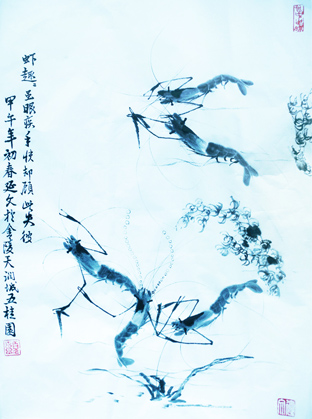 虾趣。王眼疾手快却顾此失彼
甲午年初春延久於金陵天润城五桂园